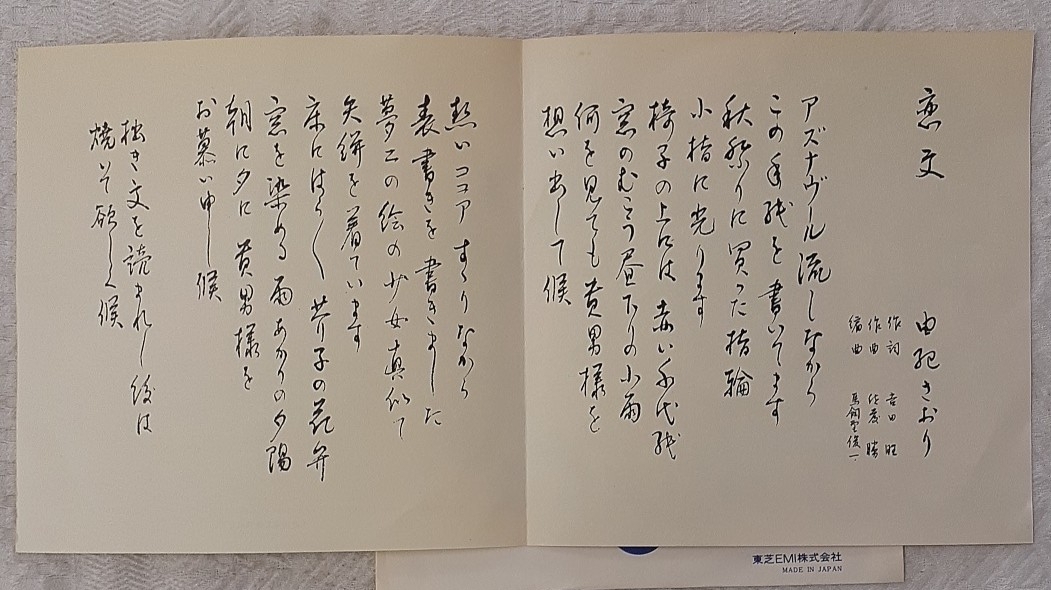 恋文
由紀さおり
作詞 吉田旺
作曲 佐藤勝
編曲 馬飼野俊一
アズナヴール流しながら
この手紙を書いてます
秋祭りに買った指輪
小指に光ります
椅子の上には赤い千代紙
窓のむこう昼下りの小雨
何を見ても貴男様を
想い出して候
熱いココアすゝりながら
表書きを書きました
夢二の絵の少女真似て
矢絣を着ています
床にはらはら芥子の花弁
窓を染める雨あがりの夕陽
朝に夕に貴男様を
お慕い申し候
拙き文を読まれし後は
焼いて欲しく候
東芝EMI株式会社
MADE IN JAPAN